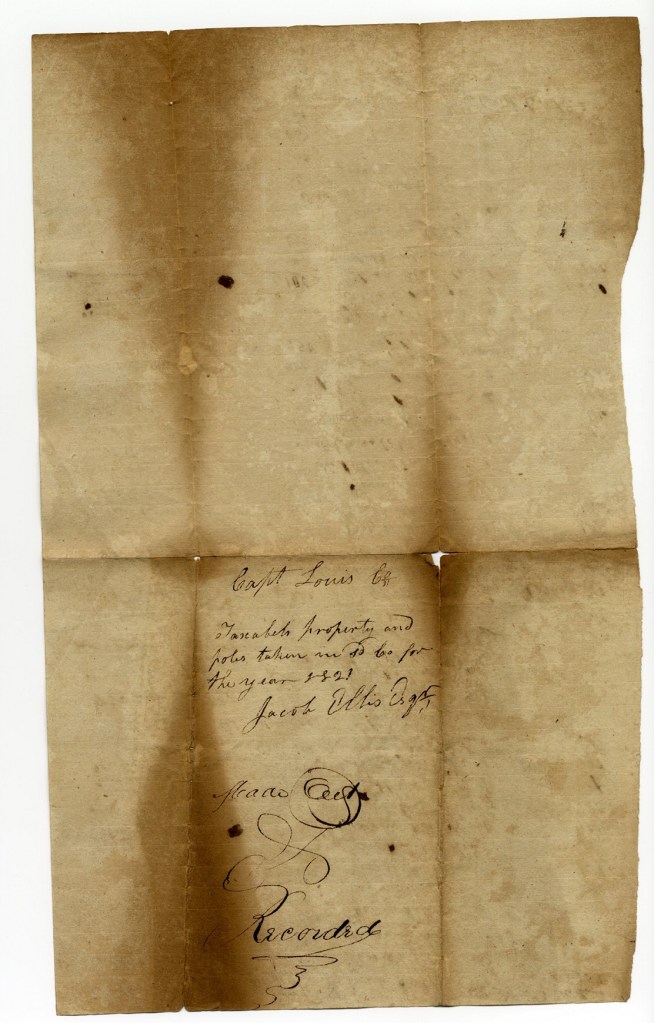 Capt Louis Co
Taxabels property and
poles taken in sd Co for
the year 1821
Jacob Ellis Esqr
Made Out
Recorded